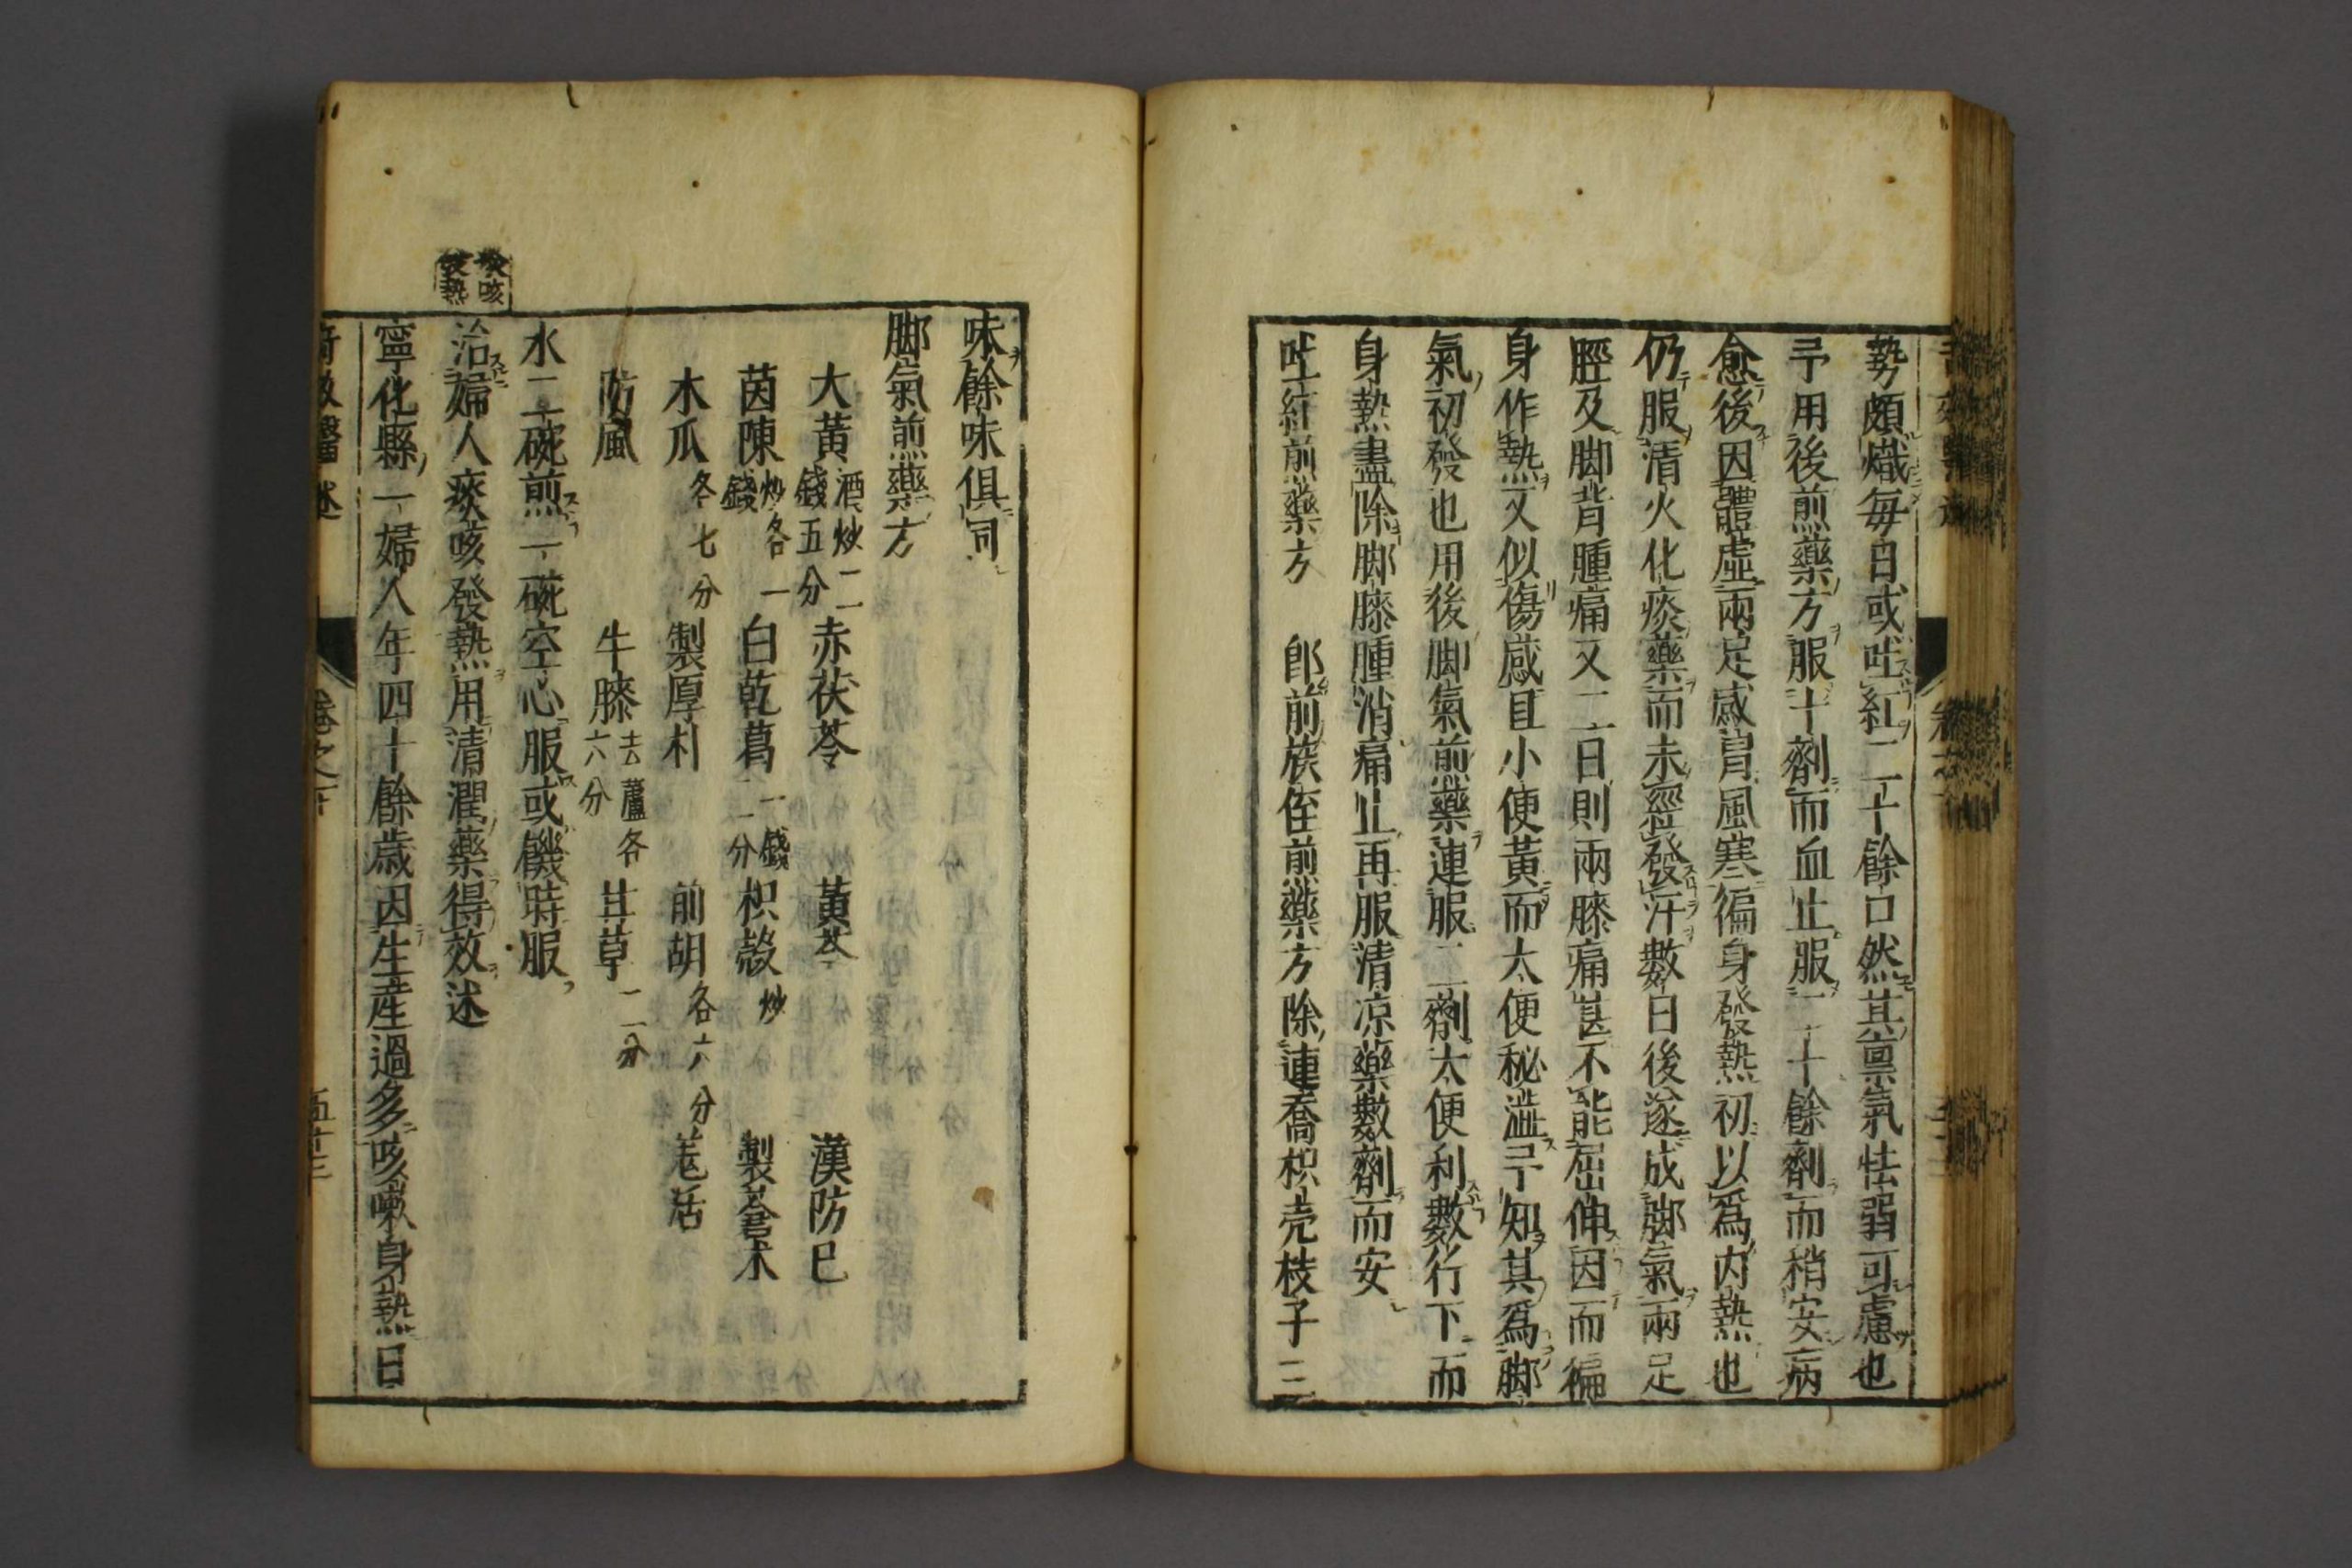 勢頗熾每日或吐紅二十餘口然其稟氣怯弱可慮也
予用後煎藥方服十劑而血止服二十餘劑而稍安病
愈後因體虛兩足感冒風寒徧身發熱初以爲内熱也
仍服清火化痰藥而未經發汗數日後遂成脚氣兩足
脛及脚背腫痛又二日則兩膝痛甚不能屈伸因而徧
身作熱又似傷感且小便黃而大便秘澁予知其爲脚
氣初發也用後脚氣煎藥連服二劑大便利數行下而
身熱盡除脚膝腫消痛止再服清凉藥數劑而安
吐紅煎藥方　即前族侄煎藥方除連喬枳壳枝子三
味餘味俱同
脚氣煎藥方
大黃酒炒二錢五分　赤茯苓　黃芩　漢防巳
茵陳炒各一錢　白乾葛一錢二分　枳殼炒　製蒼术
木瓜各七分　製厚朴　前胡各六分　羗活
防風　牛膝去蘆各六分　甘草二分
水二碗煎一碗空心服或饑時服
痰咳發熱
治婦人痰咳發熱用清潤藥得效述
寧化縣一婦人年四十餘歲因生産過多咳嗽身熱日
奇效醫述　卷之一　五十三